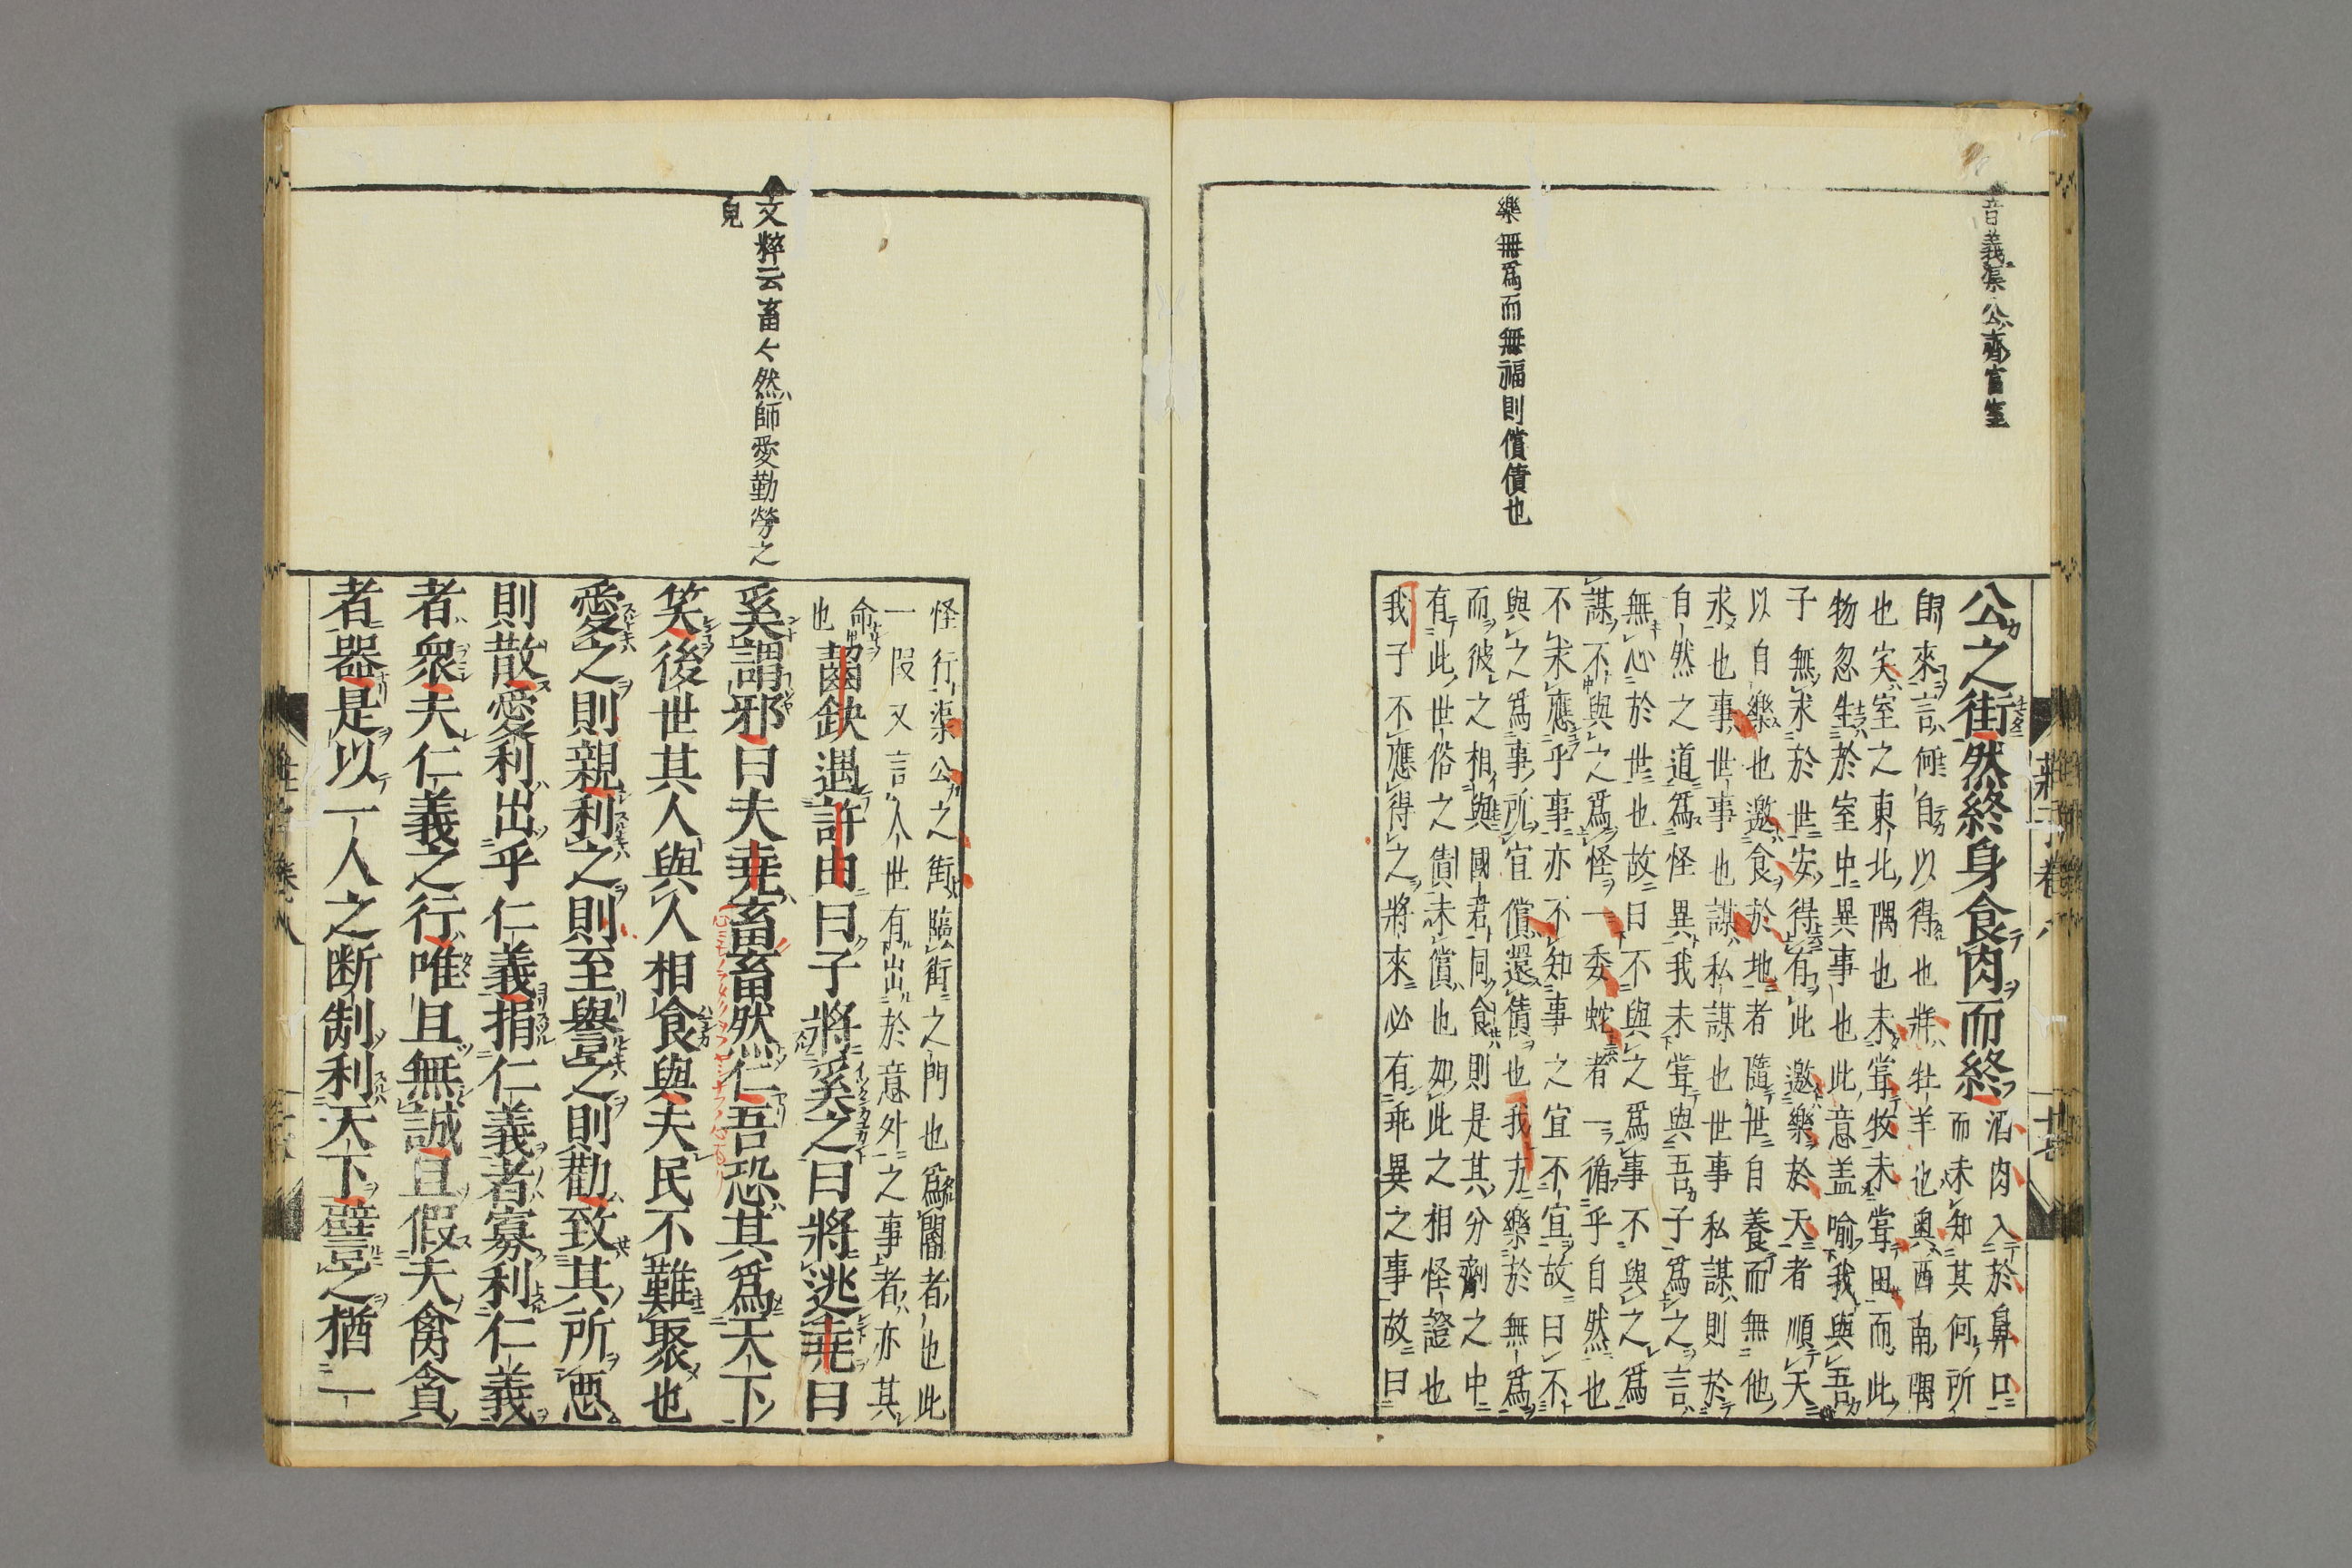 音義渠公齊富室
樂無爲而無福則償債也
公之街然終身食肉而終
酒肉入於鼻口
而未知其何所
自來言何自以得也牂牡羊也奥西南隅
也宎室之東北隅也未嘗牧未嘗田而此
物忽生於室中異事也此意盖喻我與吾
子無求於世安得有此邀樂於天者順天
以自樂也邀食於地者隨世自養而無他
求也事世事也謀私謀也世事私謀則於
自然之道爲怪異我未嘗與吾子爲之言
無心於世也故曰不與之爲事不與之爲
謀不與之爲怪一委蛇者一循乎自然也
不求應乎事亦不知事之宜不宜故曰不
與之爲事所宜償還債也我方樂於無爲
而彼之相與國君同食則是其分劑之中
有此世俗之債未償也如此之相怪證也
我子不應得之將來必有乖異之事故曰
文粹云畜々然師愛勤勞之
皃
怪行渠公之街臨街之門也爲閽者也此
一段又言人世有出於意外之事者亦其
命也
齧缺遇許由曰子將奚之曰將逃堯曰
奚謂邪曰夫堯畜畜然仁吾恐其爲天下
笑後世其人與人相食與夫民不難聚也
愛之則親利之則至譽之則勸致其所惡
則散愛利出乎仁義捐仁義者寡利仁義
者衆夫仁義之行唯且無誠且假夫禽貪
者器是以一人之断制利天下譬之猶一